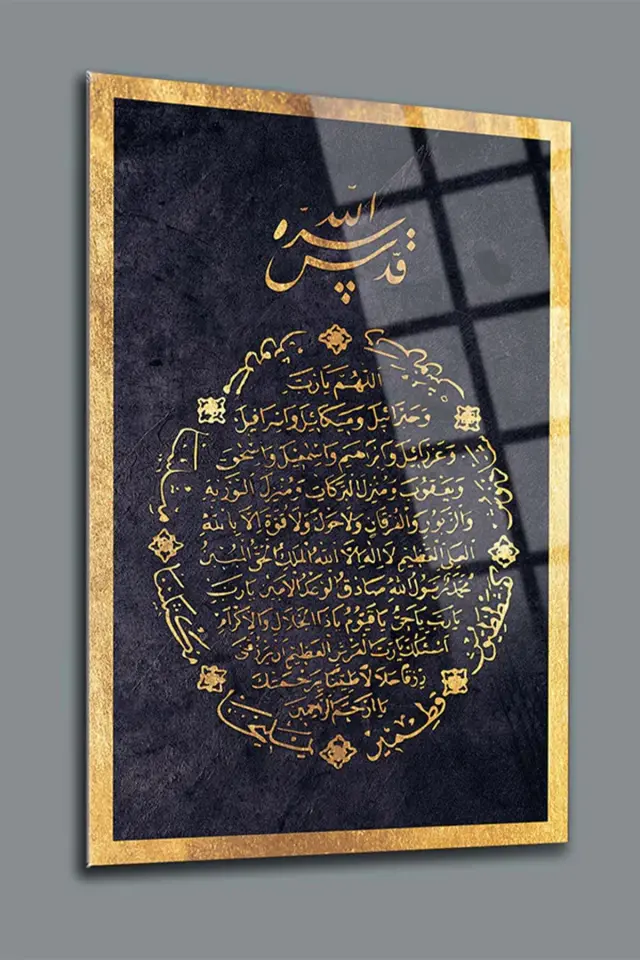 قدّس الله سرّه
اللهم يا رب
وجبرائيل وميكائيل واسرافيل
وعزرائيل وابراهيم واسمعيل واسحق
ويعقوب ومنزل البركات ومنزل التورية
والزبور والفرقان ولا حول ولا قوة الا بالله
العلي العظيم لا اله الا الله الملك الحق المبين
محمد رسول الله صادق الوعد الامين يا رب
يا رب يا حي يا قيوم يا ذا الجلال والاكرام
اسئلك يا رب العرش العظيم ان ترزقني
رزقا حلالا طيبا برحمتك
يا ارحم الراحمين
يمليخا
كفشططيوش
قطمير